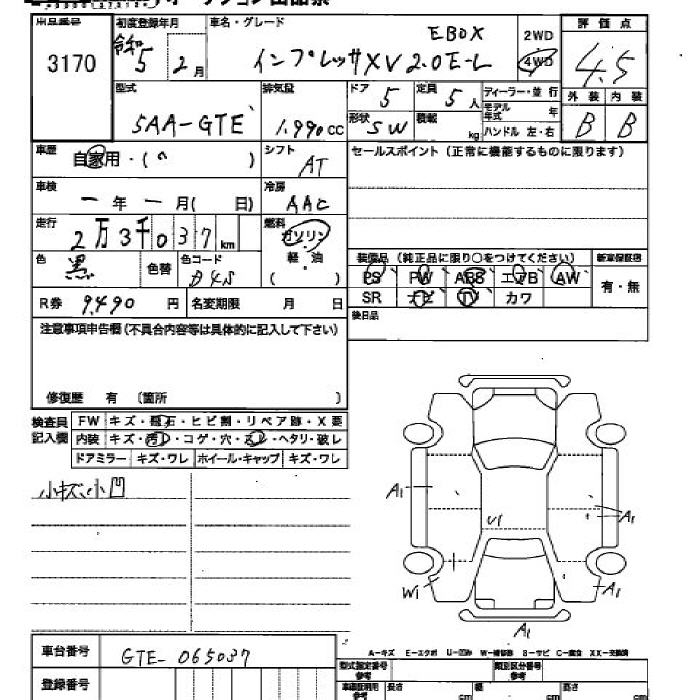 オークション出品票
出品番号 初度登録年月 車名・グレード 評価点
3170 令和5 2月 インプレッサXV 2.0E-L EBOX 2WD 4WD 4.5
型式 5AA-GTE 排気量 1.990CC ドア 5 定員 5人 ディーラー・並行 外装 内装
形状 SW 積載 kg モデル年式 年 ハンドル 左・右 B B
車歴 自家用・( ) シフト AT セールスポイント(正常に機能するものに限ります)
車検 ー年ー月( 日) 冷房 AAC
走行 2万3千037km 燃料 ガソリン
軽・油
( )
色 黒 色替 色コード D4S 装備品(純正品に限り○をつけてください) 新車保証書
PS PW ABS エアB AW 有・無
SR ナビ TV カワ
R券 9,490円 名変期限 月 日 後日品
注意事項申告欄(不具合内容等は具体的に記入して下さい)
修復歴 有 〔箇所 〕
検査員記入欄 FW キズ・飛石・ヒビ割・リペア跡・X要
内装 キズ・汚れ・コゲ・穴・スレ・ヘタリ・破レ
ドアミラー キズ・ワレ ホイール・キャップ キズ・ワレ
小キズ、小凹
A1
U1
A1
W1
A1
A1
A-キズ E-エクボ U-凹み W-補修跡 S-サビ C-腐食 XX-交換済
車台番号 GTE-065037
型式指定番号 参考 類別区分番号 参考
登録番号
車庫証明用 参考 長さ cm 幅 cm 高さ cm